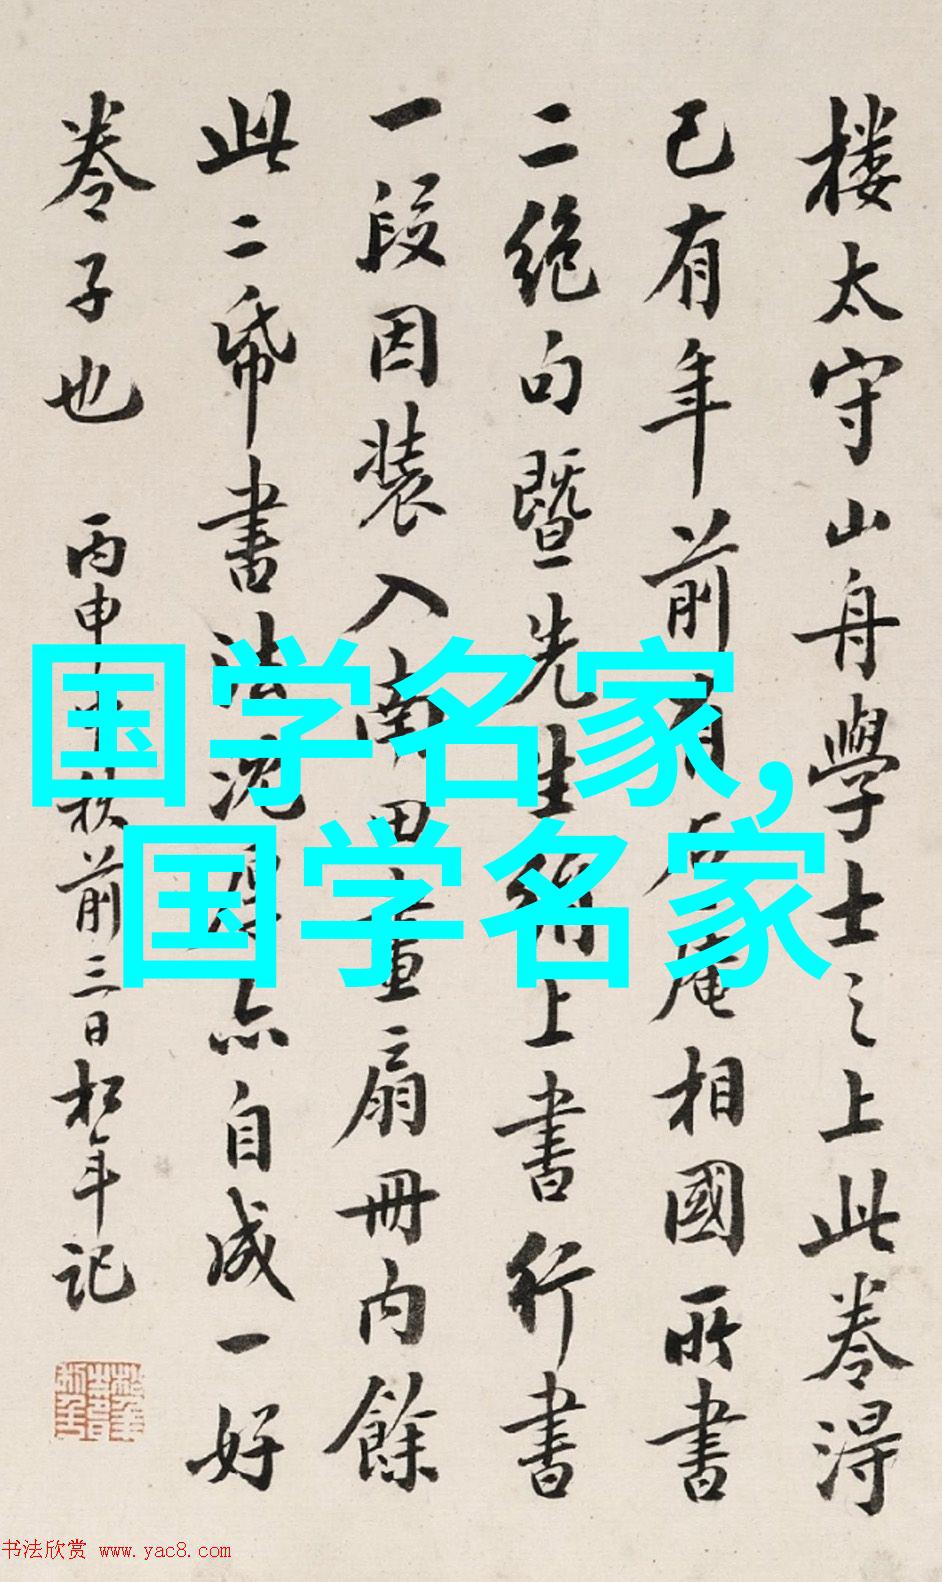 楼太守山舟學士之上此卷得
已有年前有石庵相國所書
二绝句暨先生上書行書
一段因装入南田畫扇冊内餘
此二帋書法亦自成一好
卷子也
丙申中秋前三日松年記
国学名家,
国学名家
书法欣赏 www.yac8.com